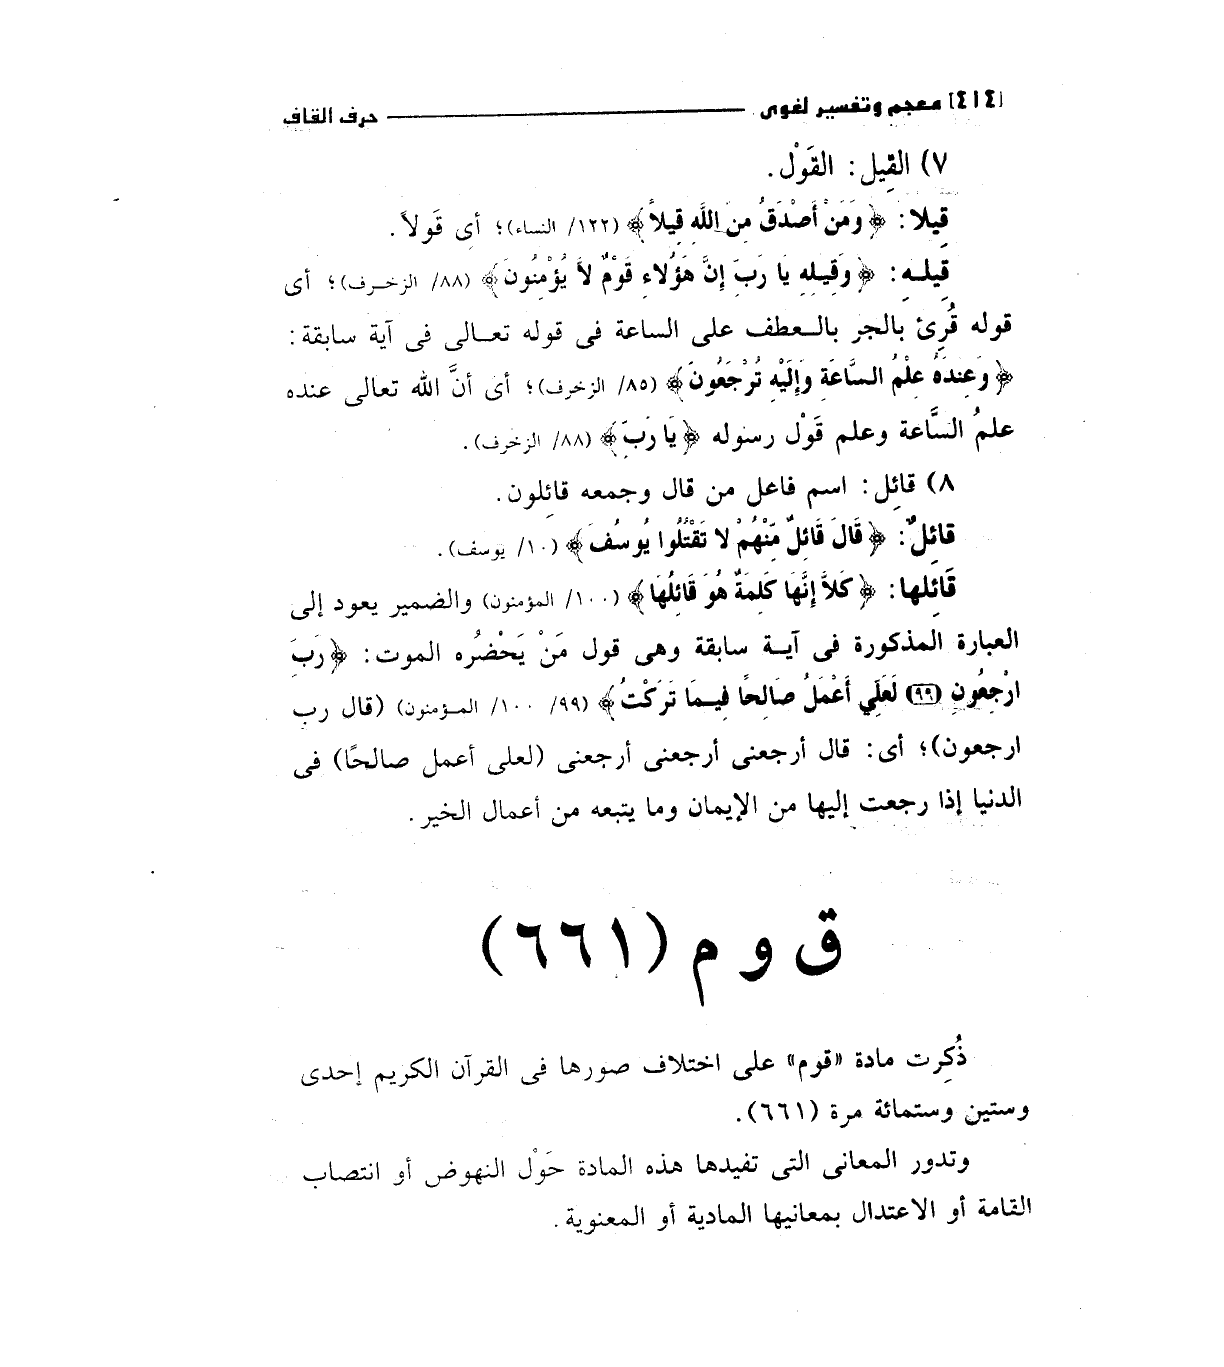 [٤١٤] معجم وتفسير لغوى ــــــــــ حرف القاف
٧) القِيل: القَوْل.
قِيلا: ﴿وَمَنْ أَصْدَقُ مِنَ اللَّهِ قِيلاً﴾ (١٢٢/ النساء)؛ أى قَولاً.
قِيلِهِ: ﴿وَقِيلِهِ يَا رَبِّ إِنَّ هَؤُلاءِ قَوْمٌ لاَ يُؤْمِنُونَ﴾ (٨٨/ الزخرف)؛ أى
قوله قُرِئ بالجر بالعطف على الساعة فى قوله تعالى فى آية سابقة:
﴿وَعِندَهُ عِلْمُ السَّاعَةِ وَإِلَيْهِ تُرْجَعُونَ﴾ (٨٥/ الزخرف)؛ أى أنَّ الله تعالى عنده
علمُ السَّاعة وعلم قَوْل رسوله ﴿يَا رَبِّ﴾ (٨٨/ الزخرف).
٨) قائِل: اسم فاعل من قال وجمعه قائِلون.
قائِلٌ: ﴿قَالَ قَائِلٌ مِّنْهُمْ لا تَقْتُلُوا يُوسُفَ﴾ (١٠/ يوسف).
قَائِلها: ﴿كَلاَّ إِنَّهَا كَلِمَةٌ هُوَ قَائِلُهَا﴾ (١٠٠/ المؤمنون) والضمير يعود إلى
العبارة المذكورة فى آية سابقة وهى قول مَنْ يَحْضُره الموت: ﴿رَبِّ
ارْجِعُونِ (٩٩) لَعَلِّي أَعْمَلُ صَالِحًا فِيمَا تَرَكْتُ﴾ (٩٩/ ١٠٠/ المؤمنون) (قال رب
ارجعون)؛ أى: قال أرجعنى أرجعنى أرجعنى (لعلى أعمل صالحًا) فى
الدنيا إذا رجعت إليها من الإيمان وما يتبعه من أعمال الخير.
ق و م (٦٦١)
ذُكِرت مادة «قوم» على اختلاف صورها فى القرآن الكريم إحدى
وستين وستمائة مرة (٦٦١).
وتدور المعانى التى تفيدها هذه المادة حَوْل النهوض أو انتصاب
القامة أو الاعتدال بمعانيها المادية أو المعنوية.